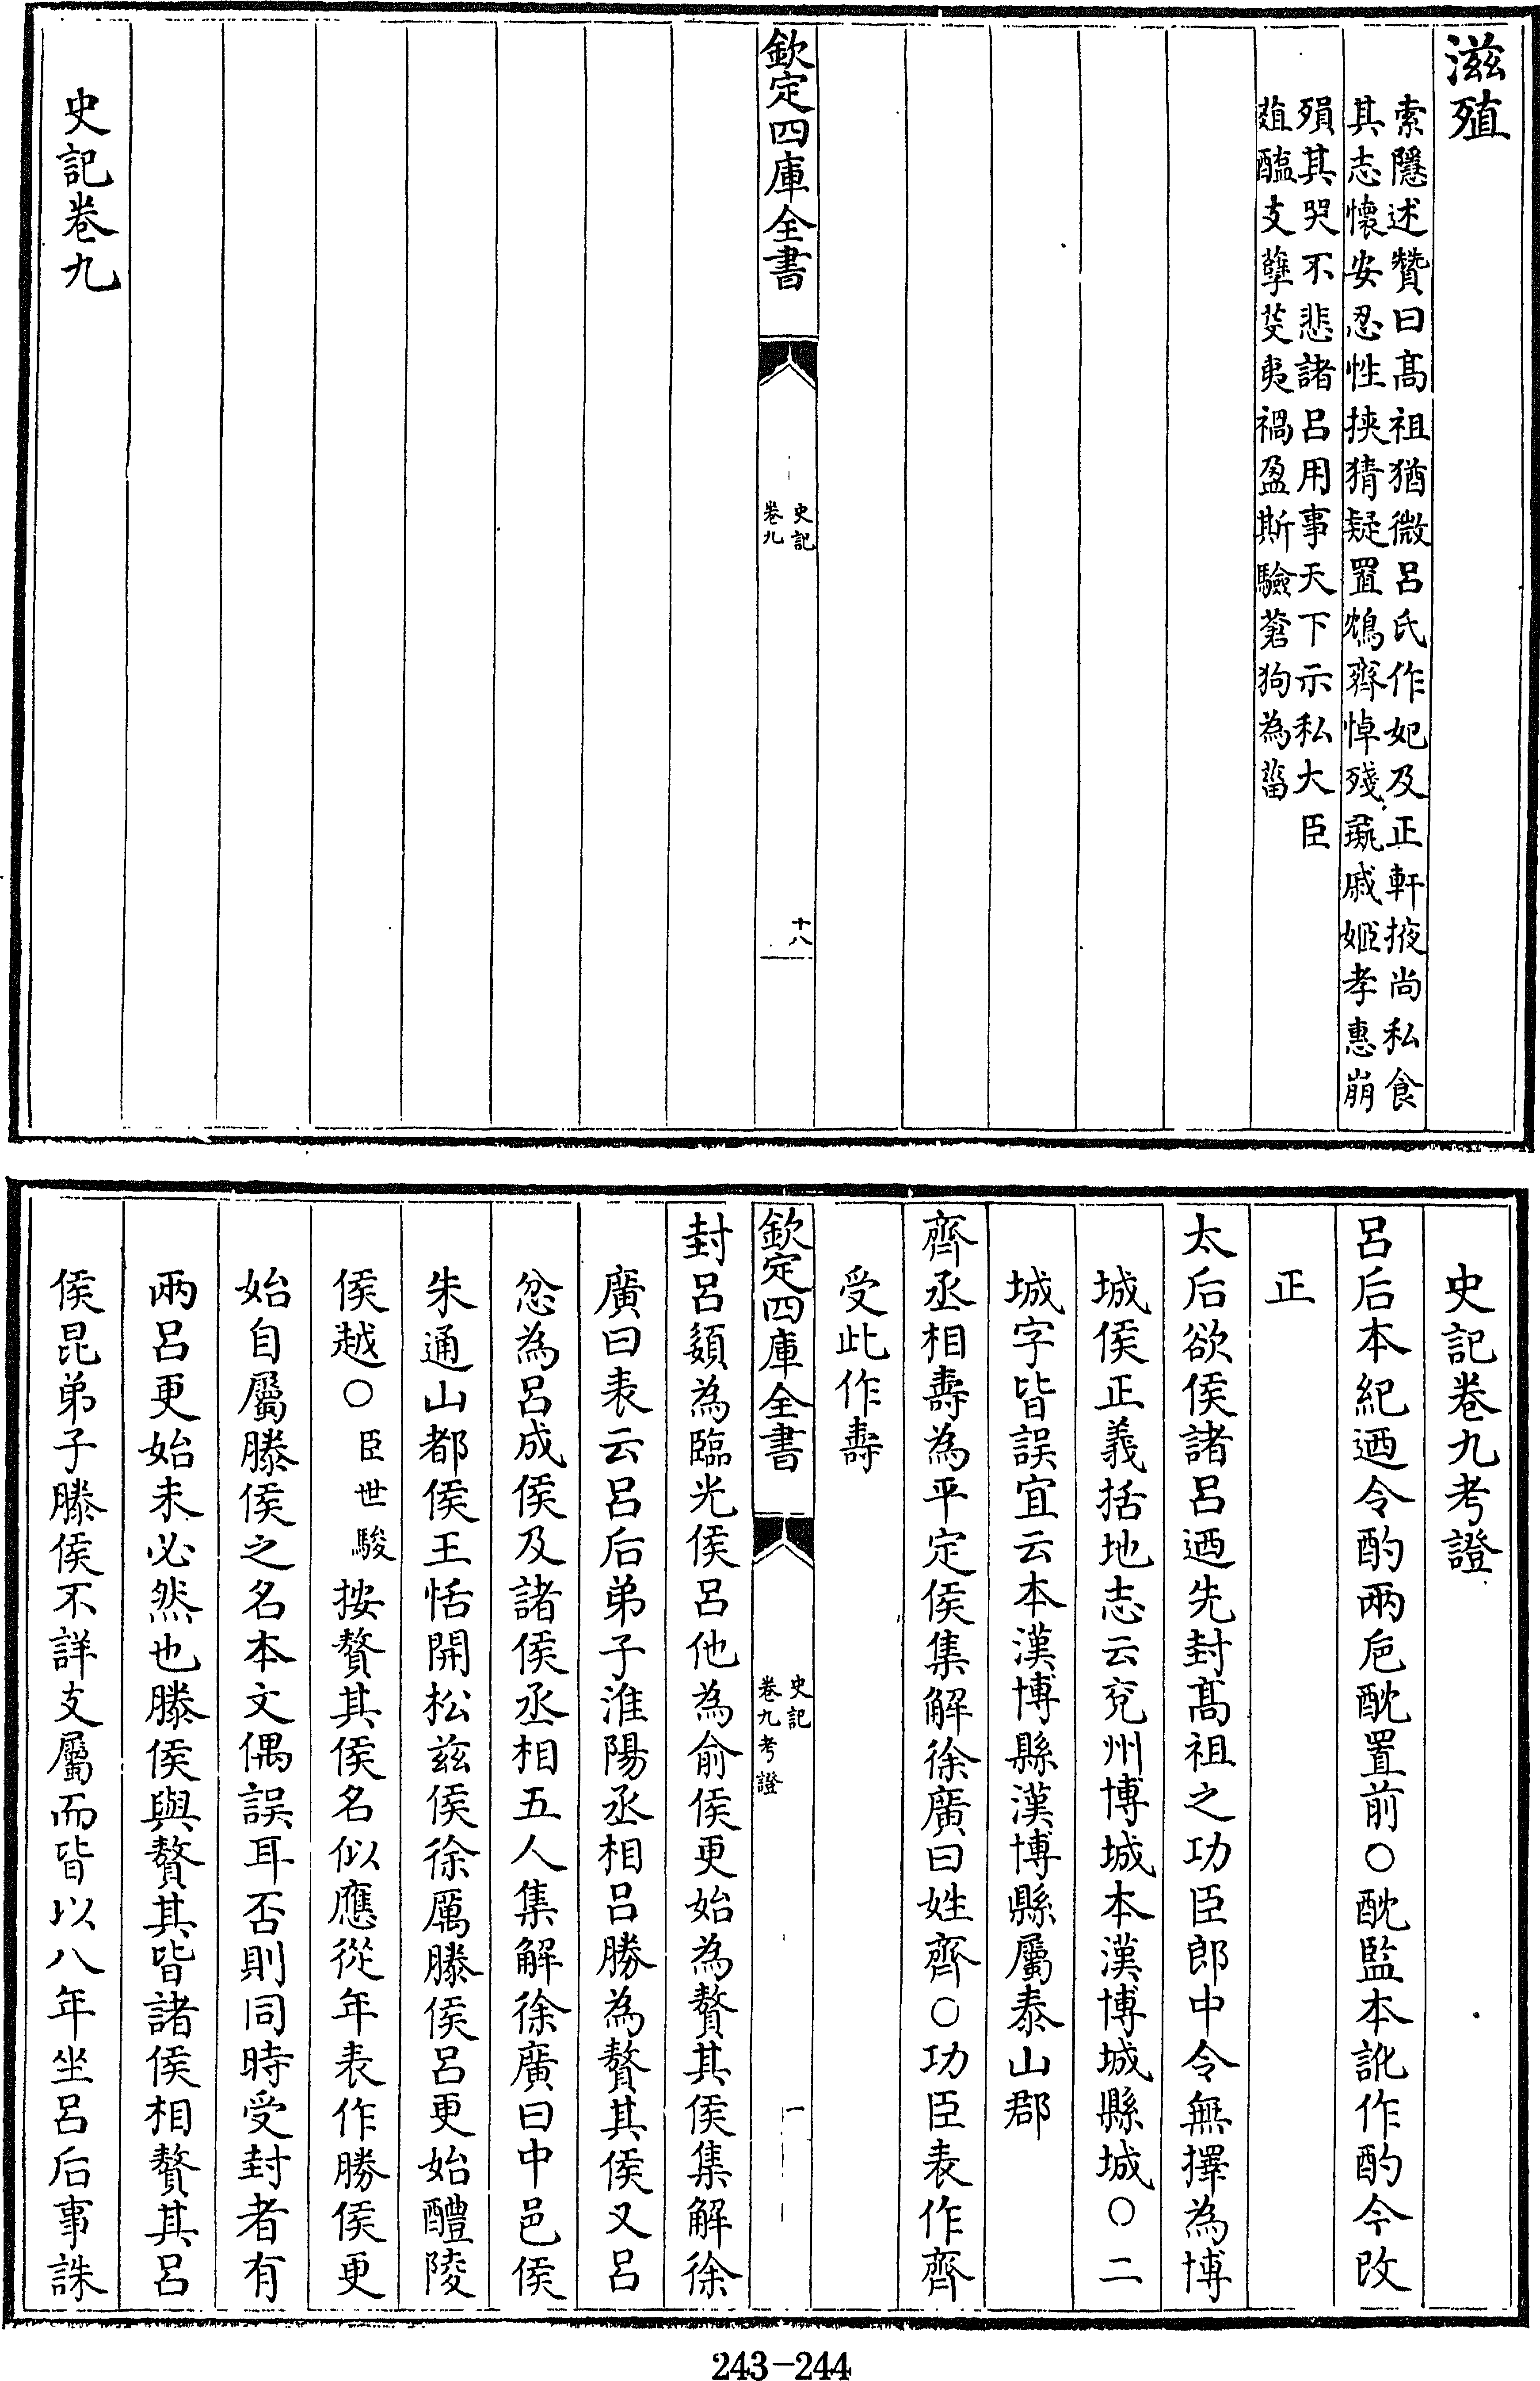 滋殖
索隱述贊曰髙祖猶微呂氏作妃及正軒掖尚私食
其志懷安忍性挾猜疑置鴆齊悼殘彘戚姬孝惠崩
殞其哭不悲諸呂用事天下示私大臣
葅醢支孽芟夷禍盈斯驗蒼狗為菑
欽定四庫全書
史記
卷九
十八
史記卷九
史記卷九考證
呂后本紀迺令酌兩巵酖置前○酖監本訛作酌今改
正
太后欲侯諸呂迺先封髙祖之功臣郎中令無擇為博
城侯正義括地志云兖州博城本漢博城縣城○二
城字皆誤宜云本漢博縣漢博縣屬泰山郡
齊丞相壽為平定侯集解徐廣曰姓齊○功臣表作齊
受此作壽
欽定四庫全書
史記
卷九考證
一
封呂嬃為臨光侯呂他為俞侯更始為贅其侯集解徐
廣曰表云呂后弟子淮陽丞相呂勝為贅其侯又呂
忿為呂成侯及諸侯丞相五人集解徐廣曰中邑侯
朱通山都侯王恬開松兹侯徐厲滕侯呂更始醴陵
侯越○臣世駿按贅其侯名似應從年表作勝侯更
始自屬滕侯之名本文偶誤耳否則同時受封者有
兩呂更始未必然也滕侯與贅其皆諸侯相贅其呂
侯昆弟子滕侯不詳支屬而皆以八年坐呂后事誅
243-244